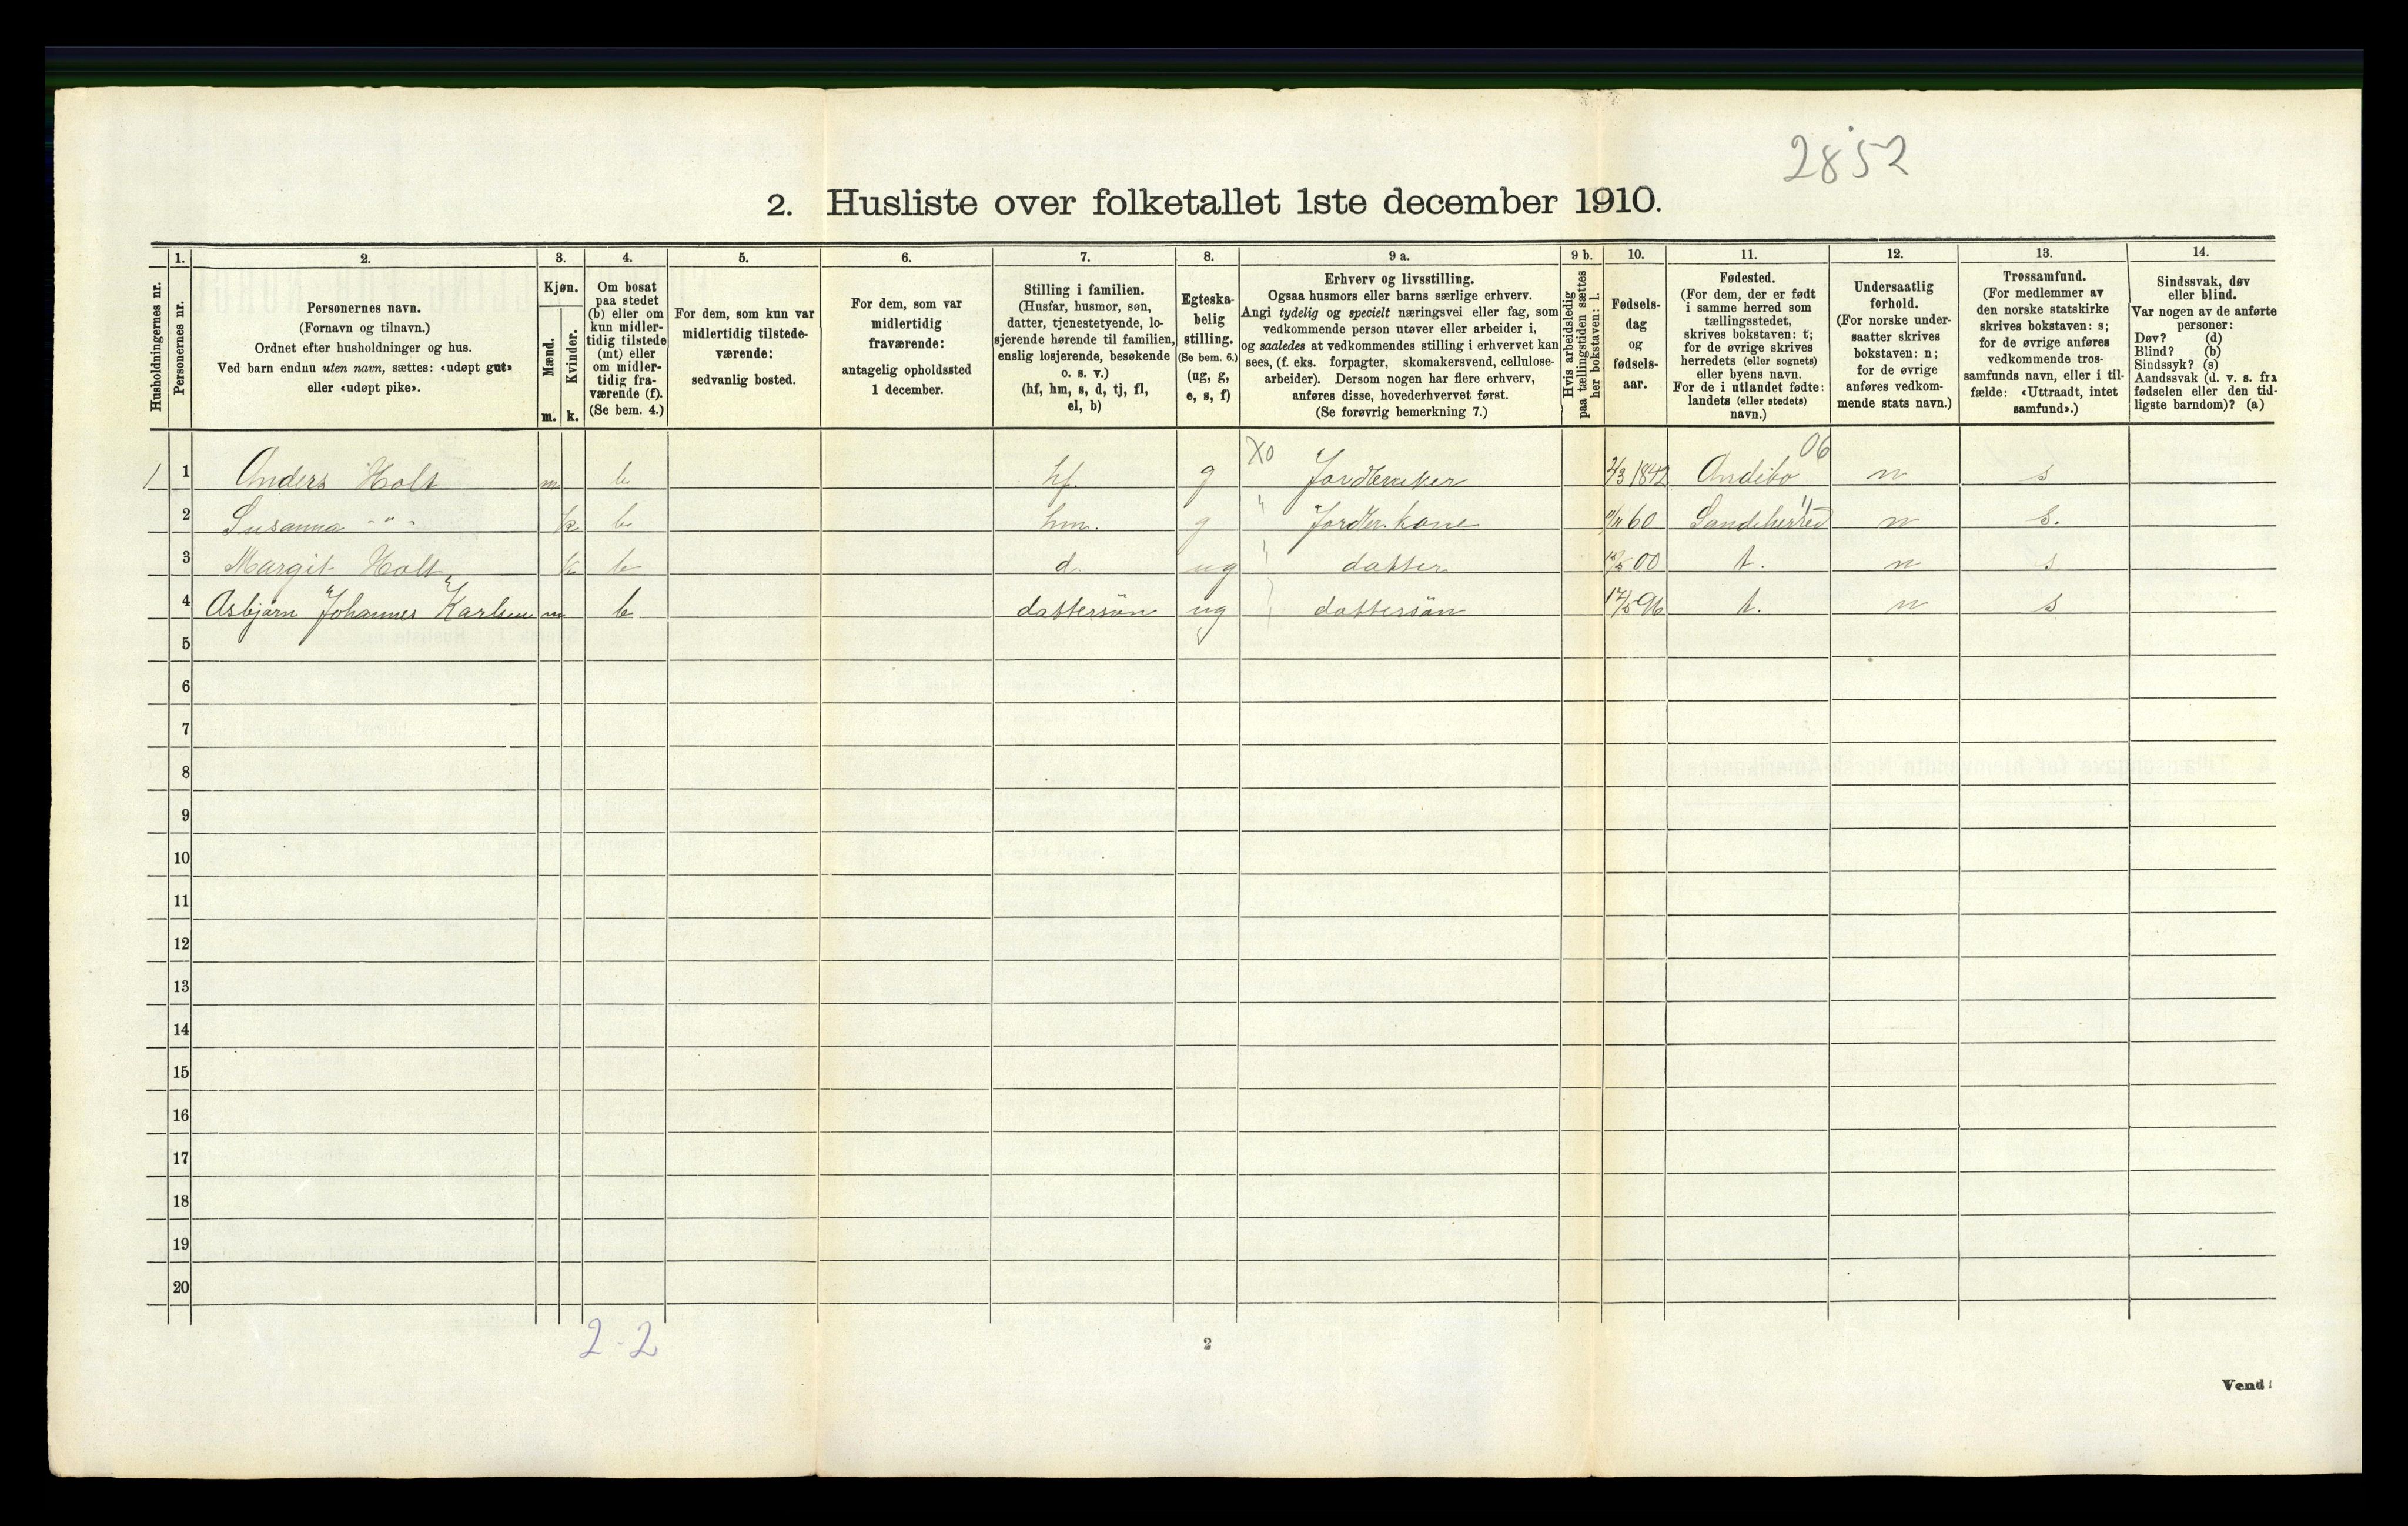 2852
2. Husliste over folketallet 1ste december 1910.
Husholdningernes nr.
1.
Personernes nr.
2.
Personernes navn.
(Fornavn og tilnavn.)
Ordnet efter husholdninger og hus.
Ved barn endnu uten navn, sættes: «udøpt gut»
eller «udøpt pike».
3.
Kjøn.
Mænd.
Kvinder.
m. k.
4.
Om bosat
paa stedet
(b) eller om
kun midler-
tidig tilstede
(mt) eller
om midler-
tidig fra-
værende (f).
(Se bem. 4.)
5.
For dem, som kun var
midlertidig tilstede-
værende:
sedvanlig bosted.
6.
For dem, som var
midlertidig
fraværende:
antagelig opholdssted
1 december.
7.
Stilling i familien.
(Husfar, husmor, søn,
datter, tjenestetyende, lo-
sjerende hørende til familien,
enslig losjerende, besøkende
o. s. v.)
(hf, hm, s, d, tj, fl,
el, b)
8.
Egteska-
belig
stilling.
(Se bem. 6.)
(ug, g,
e, s, f)
9 a.
Erhverv og livsstilling.
Ogsaa husmors eller barns særlige erhverv.
Angi tydelig og specielt næringsvei eller fag, som
vedkommende person utøver eller arbeider i,
og saaledes at vedkommendes stilling i erhvervet kan
sees, (f. eks. forpagter, skomakersvend, cellulose-
arbeider). Dersom nogen har flere erhverv,
anføres disse, hovederhvervet først.
(Se forøvrig bemerkning 7.)
9 b.
Hvis arbeidsledig
paa tællingstiden sættes
her bokstaven: l.
10.
Fødsels-
dag
og
fødsels-
aar.
11.
Fødested.
(For dem, der er født
i samme herred som
tællingsstedet,
skrives bokstaven: t;
for de øvrige skrives
herredets (eller sognets)
eller byens navn.
For de i utlandet fødte:
landets (eller stedets)
navn.)
12.
Undersaatlig
forhold.
(For norske under-
saatter skrives
bokstaven: n;
for de øvrige
anføres vedkom-
mende stats navn.)
13.
Trossamfund.
(For medlemmer av
den norske statskirke
skrives bokstaven: s;
for de øvrige anføres
vedkommende tros-
samfunds navn, eller i til-
fælde: «Uttraadt, intet
samfund».)
14.
Sindssvak, døv
eller blind.
Var nogen av de anførte
personer:
Døv? (d)
Blind? (b)
Sindssyk? (s)
Aandssvak (d. v. s. fra
fødselen eller den tid-
ligste barndom)? (a)
X0 06
1 1 Anders Holt m b hf. g Jordbruker 2/3 1842 Andebo n s
2 Susanna -"- k b hm. g " Jordbr. kone 60 Sandeherred n s.
3 Margit Holt k b d. ug " datter 00 t. n s
4 Asbjørn Johannes Karlsen m b dattersøn ug dattersøn 17/5 96 t. n s
5
6
7
8
9
10
11
12
13
14
15
16
17
18
19
20
2-2
2
Vend!